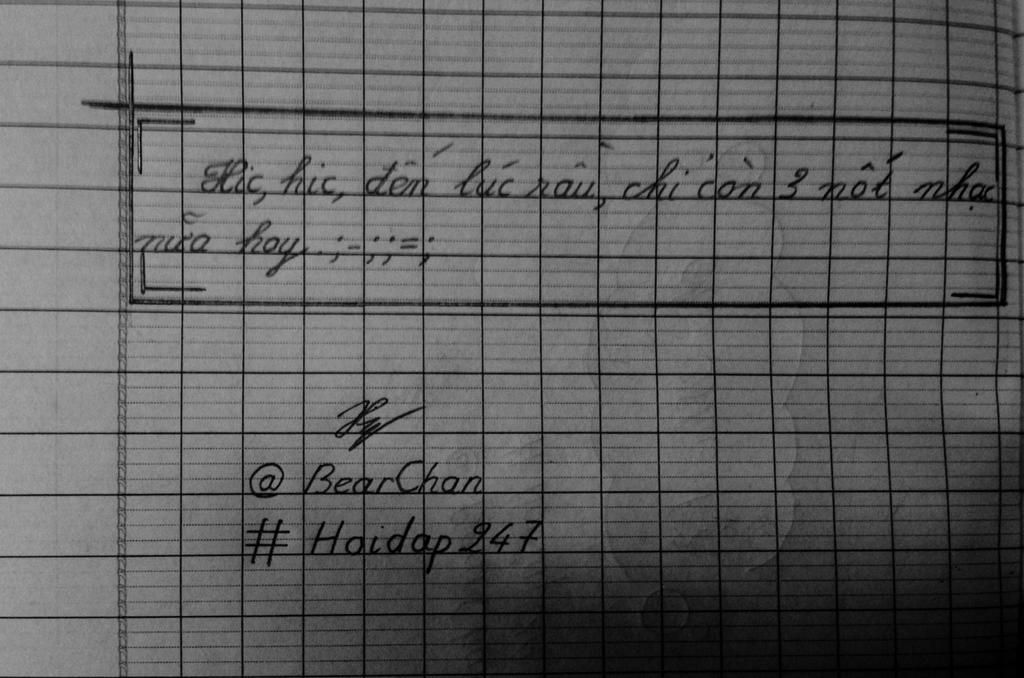 Hic, hic, đến lúc rầu, chỉ còn 3 nốt nhạc
nữa hoy. ;-;;=;
@ BearChan
# Hoidap247